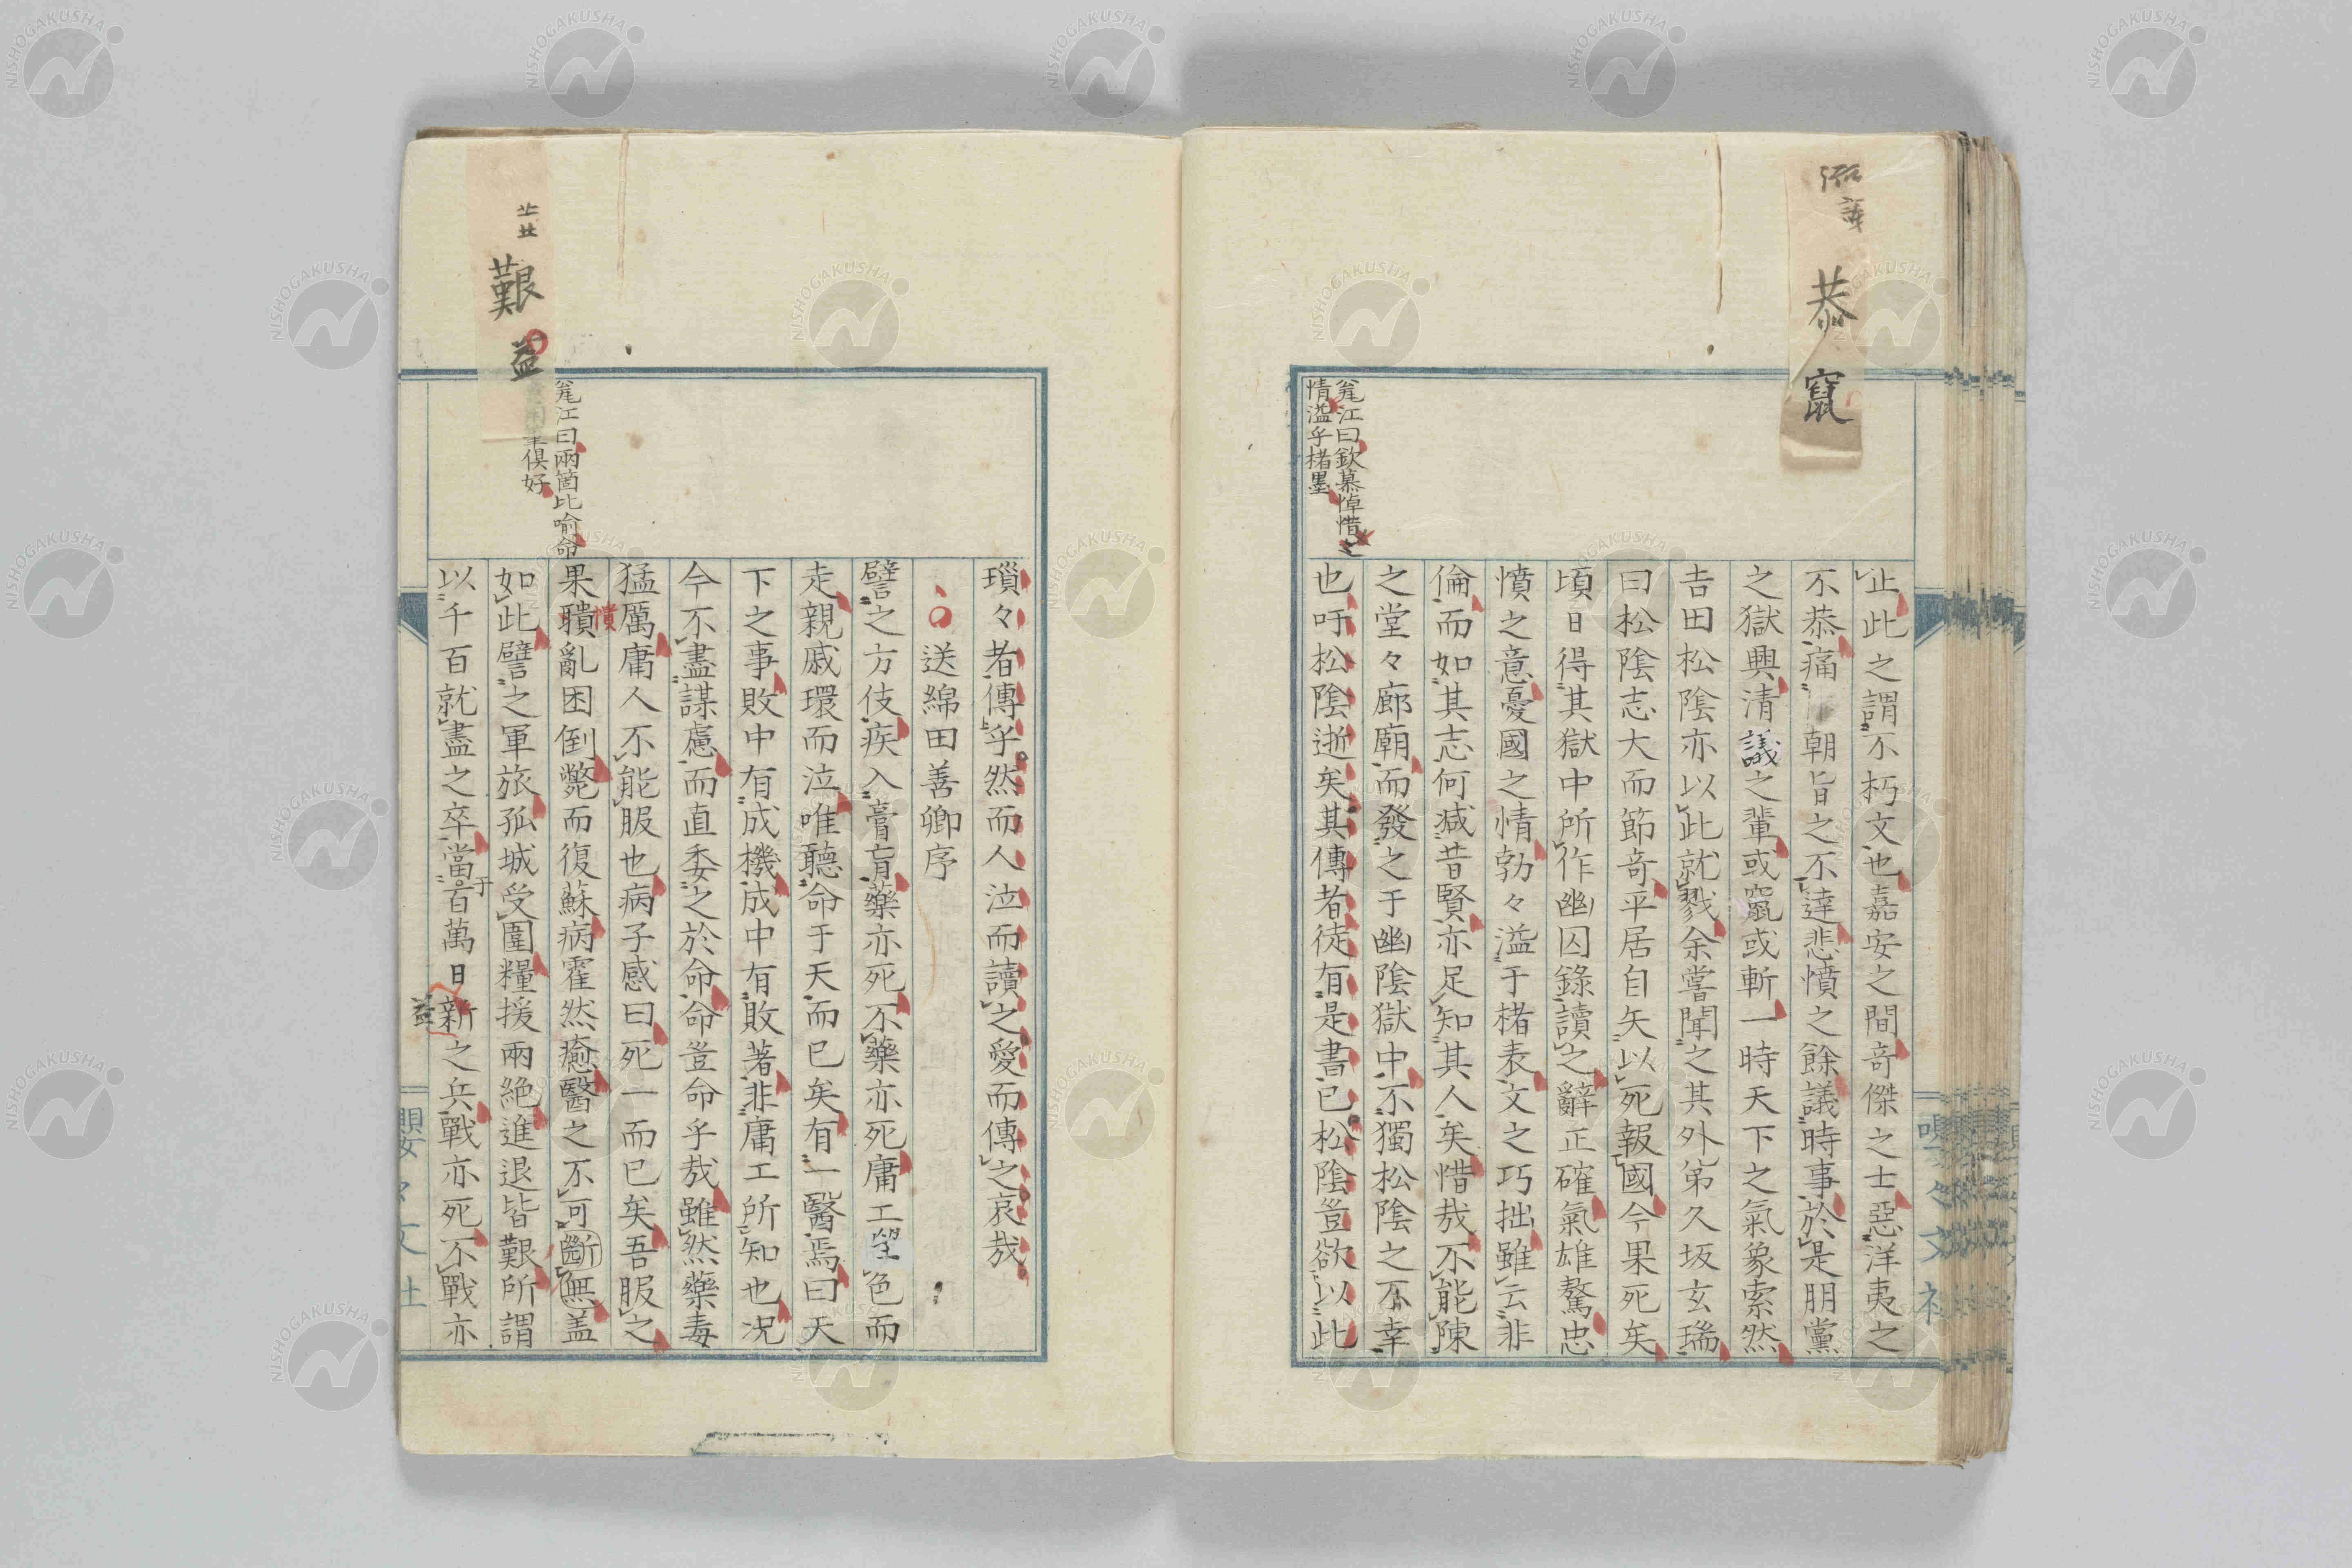 止此之謂不朽文也嘉安之間奇傑之士惡洋夷之
不恭痛朝旨之不達悲憤之餘議時事於是朋黨
之獄興清議之輩或竄或斬一時天下之氣象索然
吉田松陰亦以此就戮余嘗聞之其外弟久坂玄瑞
曰松陰志大而節奇平居自矢以死報國今果死矣
頃日得其獄中所作幽囚錄讀之辭正確氣雄驁忠
憤之意憂國之情勃々溢于楮表文之巧拙雖云非
倫而如其志何減昔賢亦足知其人矣惜哉不能陳
之堂々廊廟而發之于幽陰獄中不獨松陰之不幸
也吁松陰逝矣其傳者徒有是書已松陰豈欲以此
毻江曰欽慕悼惜之
情溢乎楮墨
恭
竄
瑣々者傳乎然而人泣而讀之愛而傳之哀哉
送綿田善卿序
譬之方伎疾入膏肓藥亦死不藥亦死庸工望色而
走親戚環而泣唯聽命于天而已矣有一醫焉曰天
下之事敗中有成機成中有敗著非庸工所知也況
今不盡謀慮而直委之於命命豈命乎哉雖然藥毒
猛厲庸人不能服也病子感曰死一而已矣吾服之
果聵亂困倒斃而復蘇病霍然癒醫之不可斷無蓋
憒
如此譬之軍旅孤城受圍糧援兩絕進退皆艱所謂
以千百就盡之卒當百萬日新之兵戰亦死不戰亦
于
益
江曰兩箇比喻命
俱好
艱
益
嚶々文社
NISHOGAKUSHA